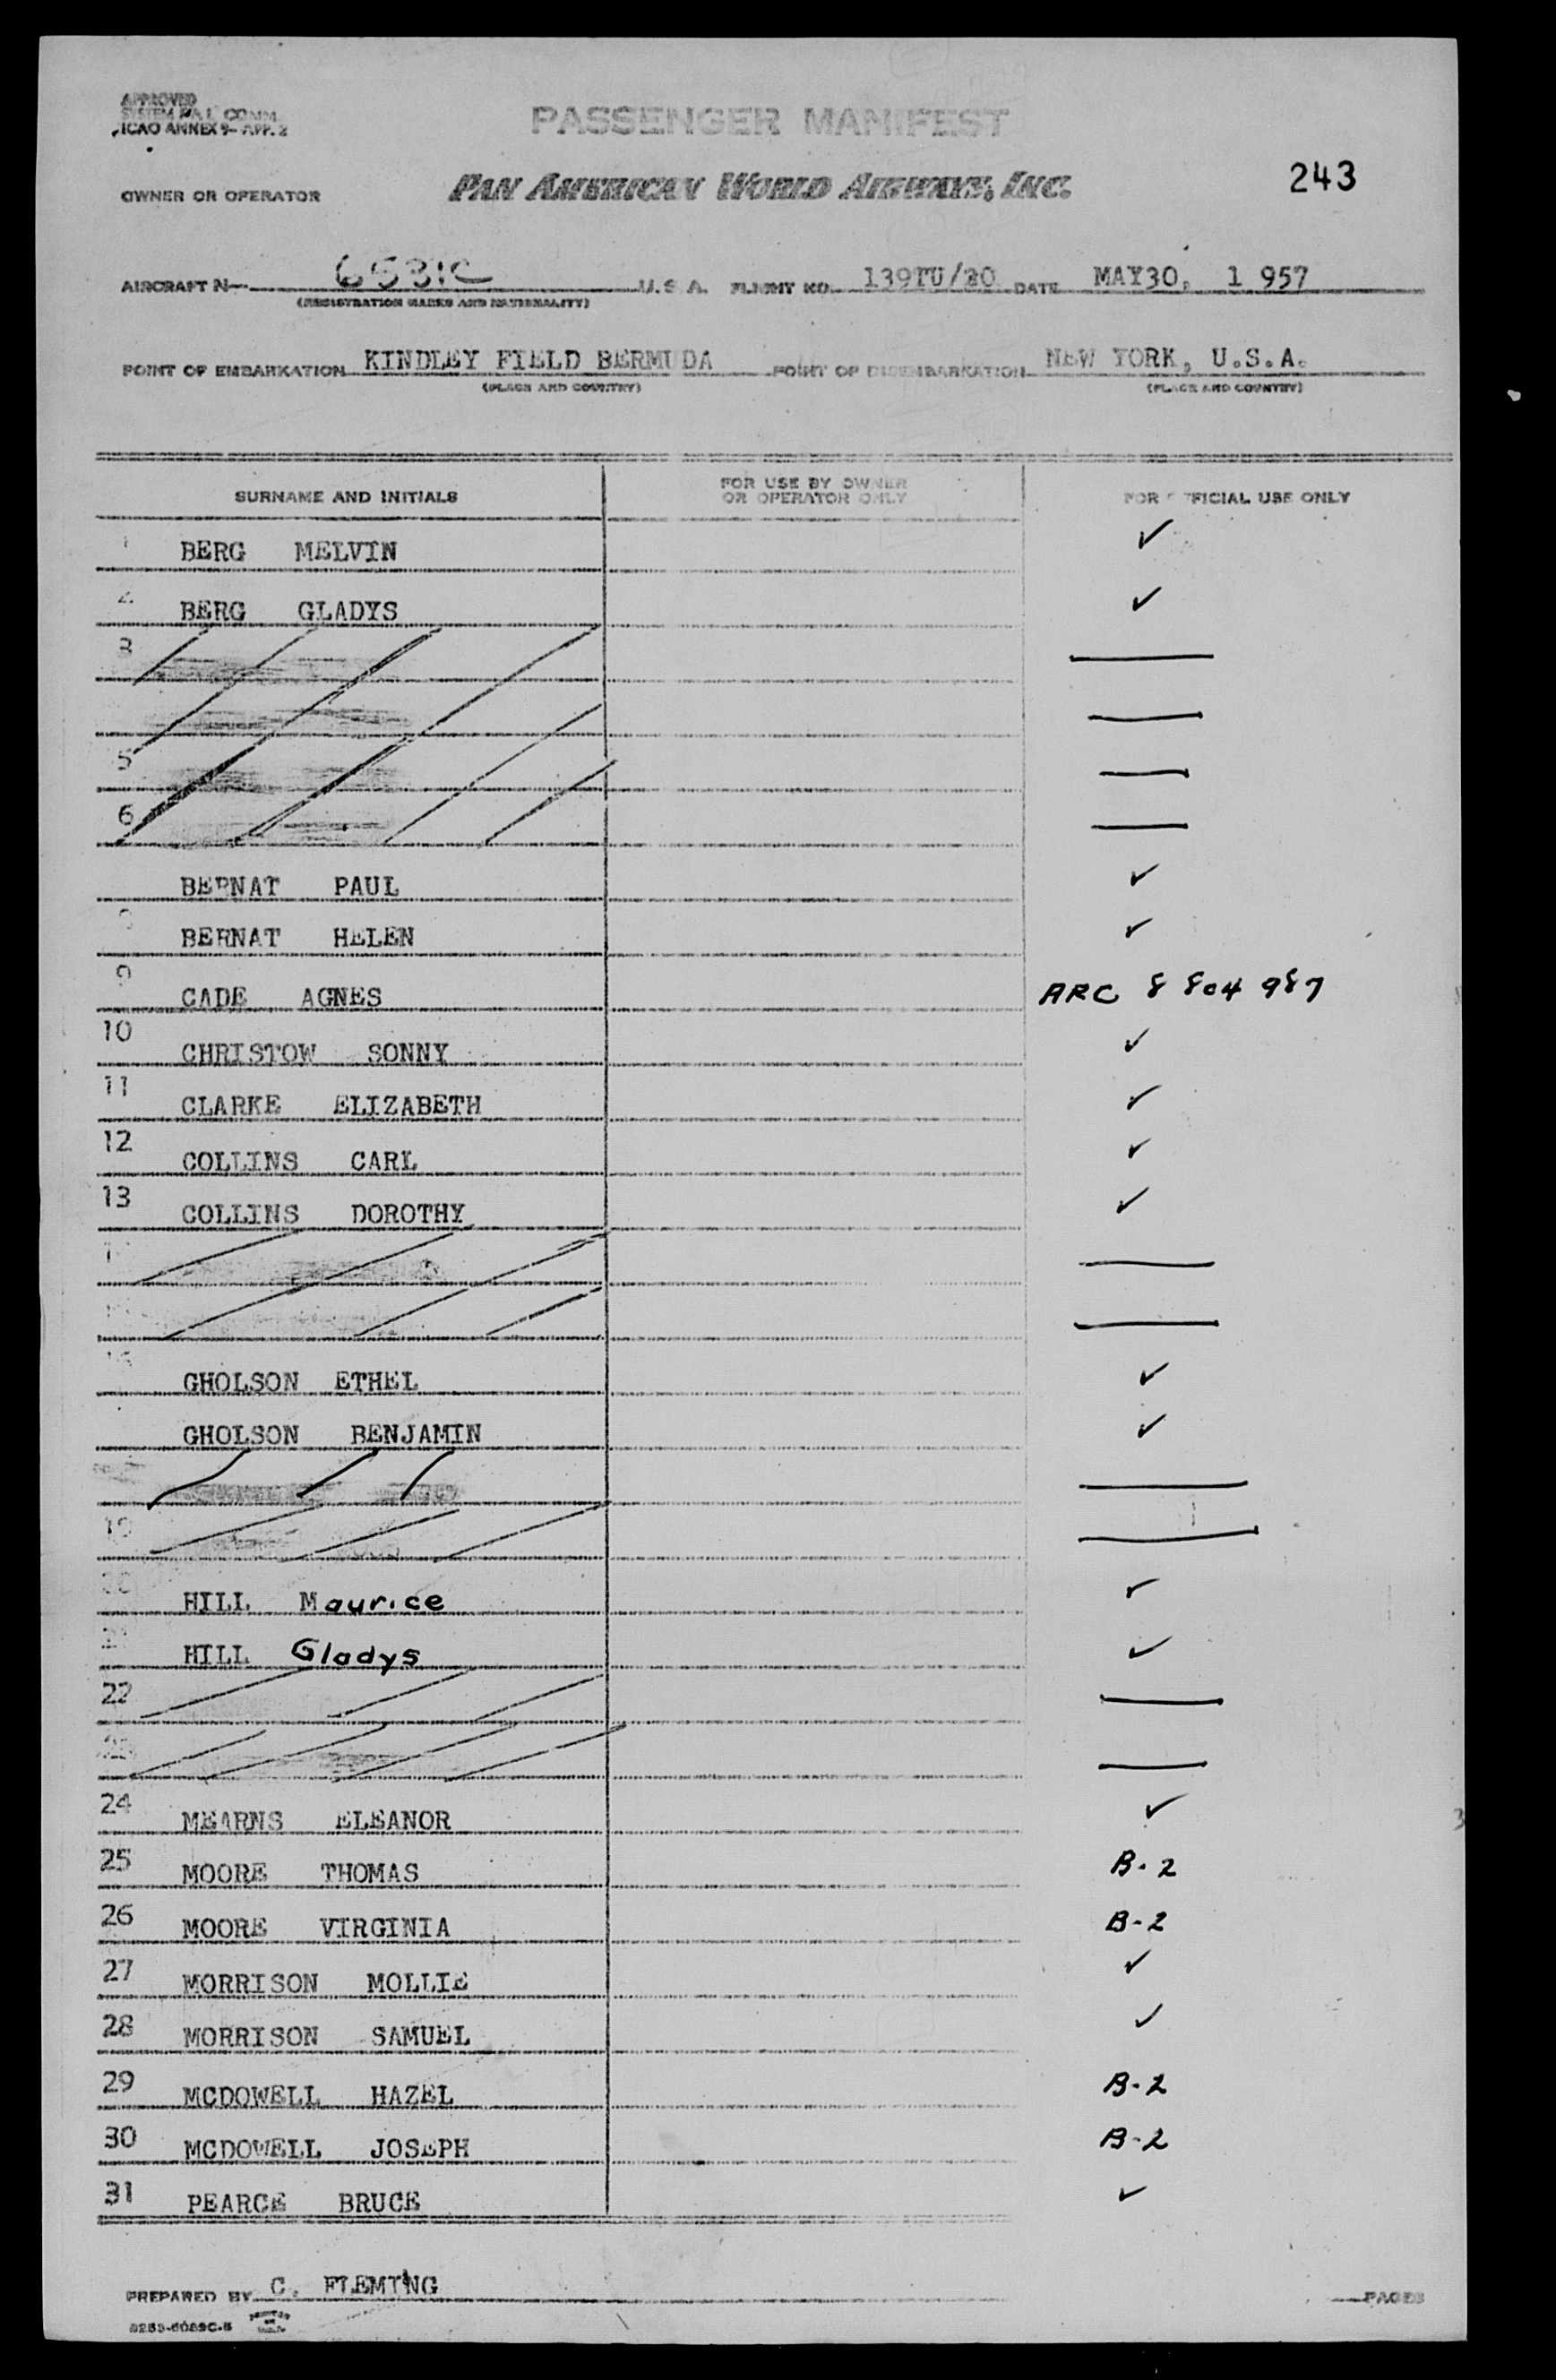 APPROVED
ICAO ANNEX 9- APP. 2
PASSENGER MANIFEST
OWNER OR OPERATOR PAN AMERICAN WORLD AIRWAYS, INC. 243
AIRCRAFT N- 6531C U.S.A. FLIGHT NO. 139TU/30 DATE MAY30, 1 957
(REGISTRATION MARKS AND NATIONALITY)
POINT OF EMBARKATION KINDLEY FIELD BERMUDA POINT OF DISEMBARKATION NEW YORK, U.S.A.
(PLACE AND COUNTRY) (PLACE AND COUNTRY)
SURNAME AND INITIALS FOR USE BY OWNER OR OPERATOR ONLY FOR OFFICIAL USE ONLY
1 BERG MELVIN ✓
2 BERG GLADYS ✓
3
5
6
BERNAT PAUL ✓
BERNAT HELEN ✓
9 CADE AGNES ARC 8 804 987
10 CHRISTOW SONNY ✓
11 CLARKE ELIZABETH ✓
12 COLLINS CARL ✓
13 COLLINS DOROTHY ✓
GHOLSON ETHEL ✓
GHOLSON BENJAMIN ✓
19
HILL Maurice ✓
HILL Gladys ✓
22
24 MEARNS ELEANOR ✓
25 MOORE THOMAS B-2
26 MOORE VIRGINIA B-2
27 MORRISON MOLLIE ✓
28 MORRISON SAMUEL ✓
29 MCDOWELL HAZEL B-2
30 MCDOWELL JOSEPH B-2
31 PEARCE BRUCE ✓
PREPARED BY C. FLEMING PAGES